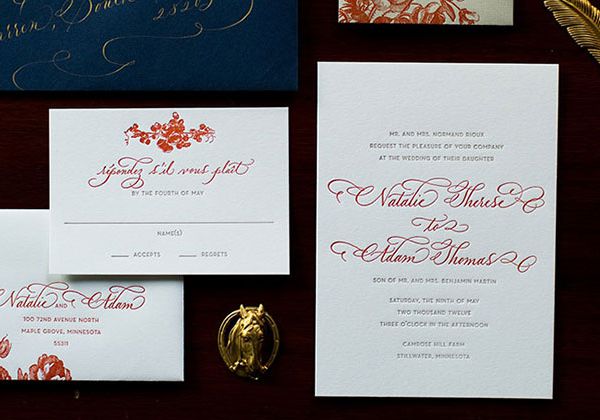 2820
répondez s'il vous plaît
BY THE FOURTH OF MAY
NAME(S)
ACCEPTS REGRETS
Natalie AND Adam
100 72ND AVENUE NORTH
MAPLE GROVE, MINNESOTA
55311
MR. AND MRS. NORMAND RIOUX
REQUEST THE PLEASURE OF YOUR COMPANY
AT THE WEDDING OF THEIR DAUGHTER
Natalie Therese
to
Adam Thomas
SON OF MR. AND MRS. BENJAMIN MARTIN
SATURDAY, THE NINTH OF MAY
TWO THOUSAND TWELVE
THREE O'CLOCK IN THE AFTERNOON
CAMROSE HILL FARM
STILLWATER, MINNESOTA